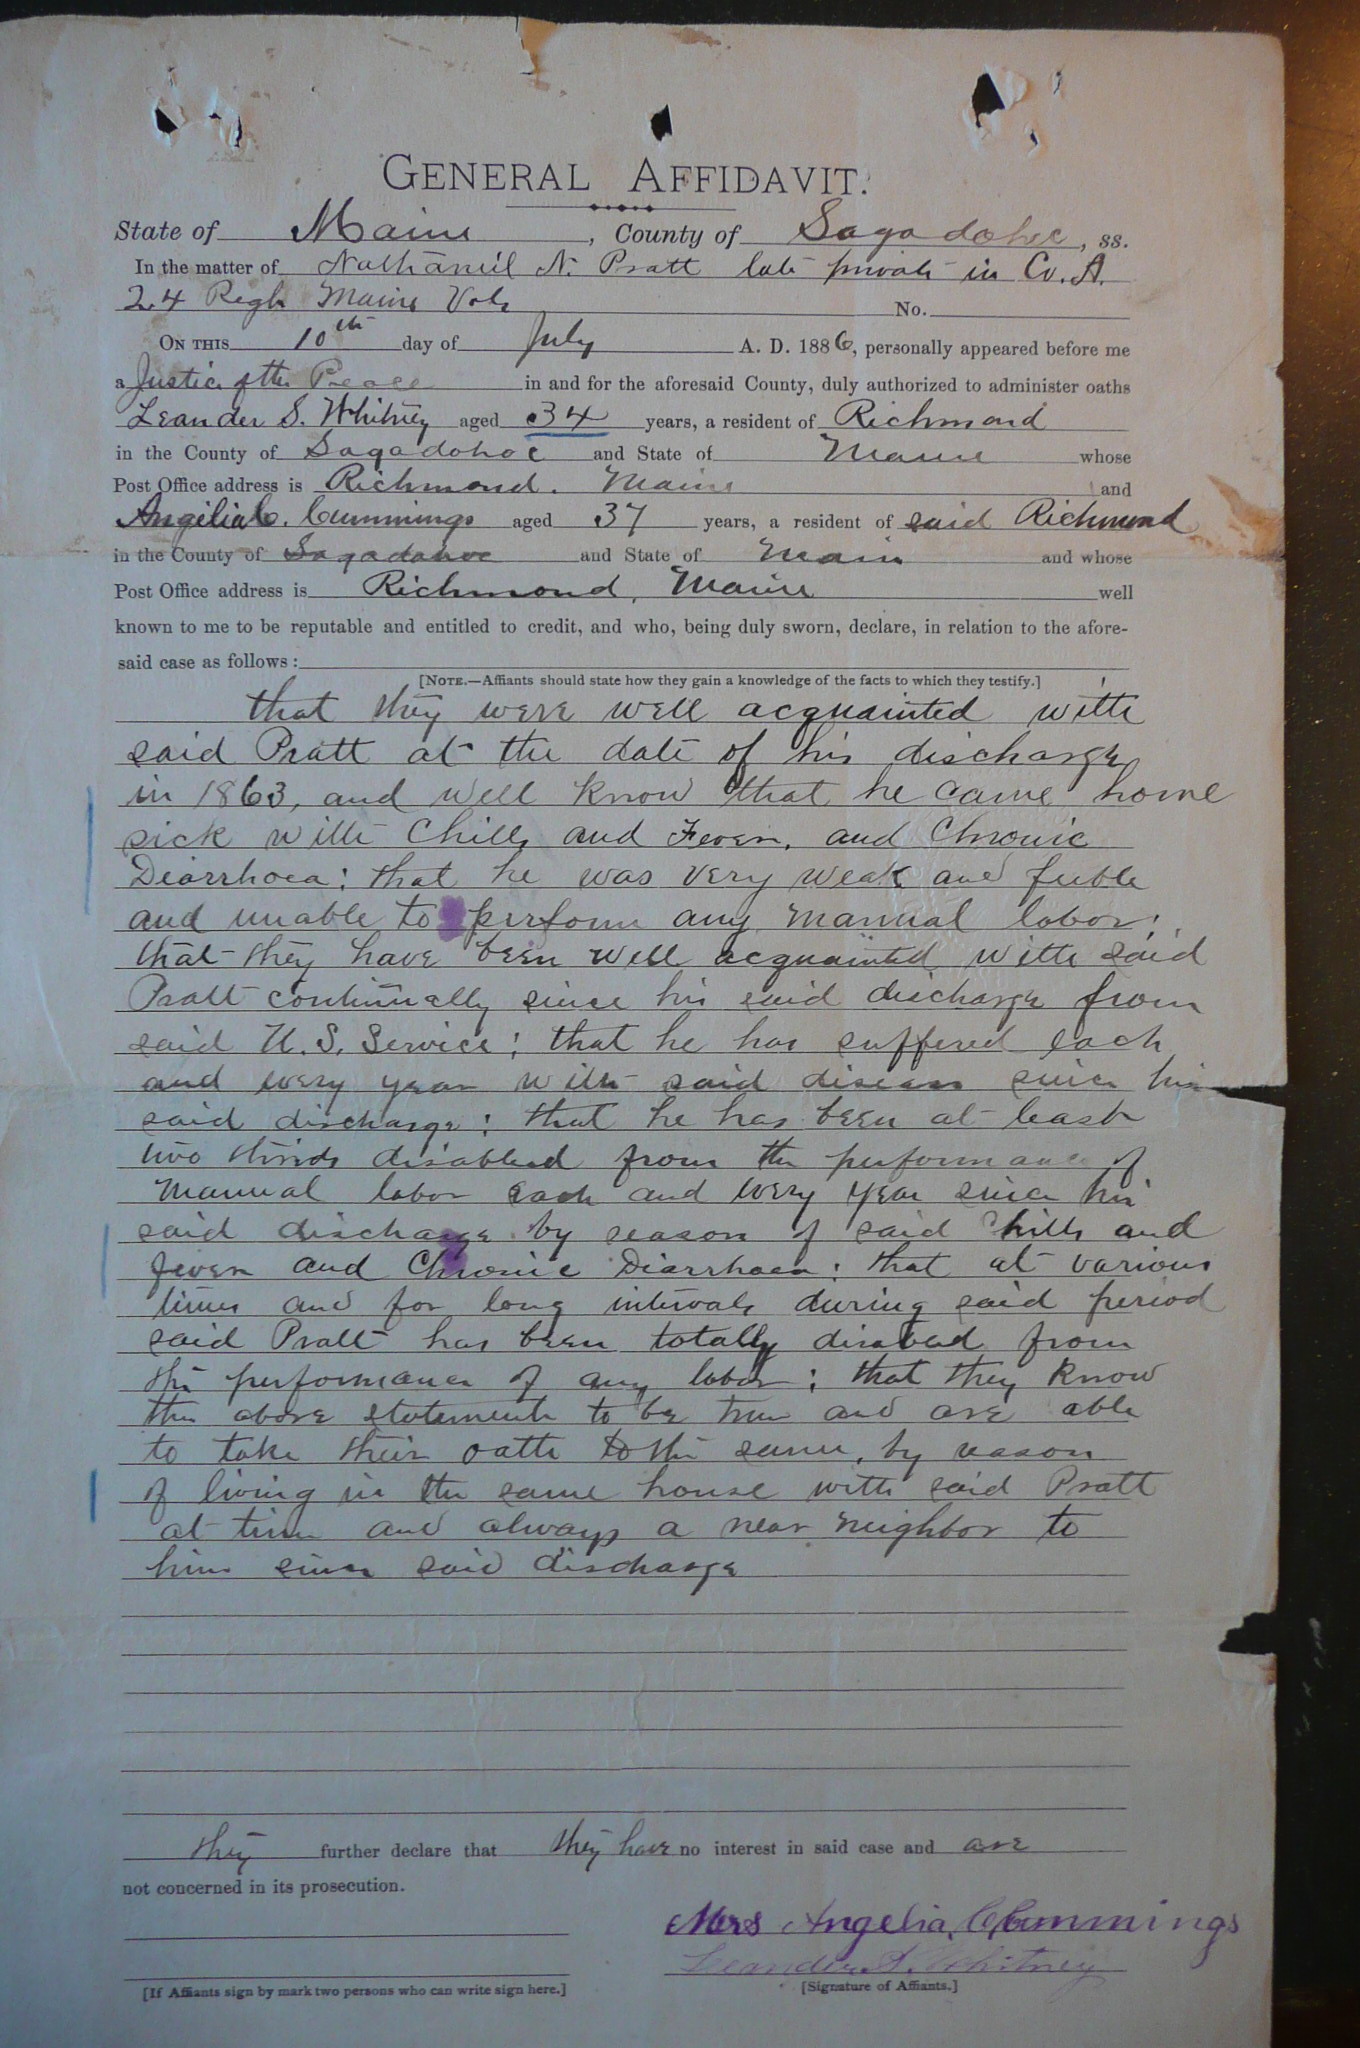 GENERAL AFFIDAVIT.
State of Maine, County of Sagadohoc, ss.
In the matter of Nathaniel N. Pratt late private in Co. A.
24 Regt Maine Vols No.
ON THIS 10th day of July A. D. 1886, personally appeared before me
a Justice of the Peace in and for the aforesaid County, duly authorized to administer oaths
Leander S. Whitney aged 34 years, a resident of Richmond
in the County of Sagadohoc and State of Maine whose
Post Office address is Richmond. Maine and
Angelia C. Cummings aged 37 years, a resident of said Richmond
in the County of Sagadahoc and State of Main and whose
Post Office address is Richmond, Maine well
known to me to be reputable and entitled to credit, and who, being duly sworn, declare, in relation to the afore-
said case as follows:
[NOTE.—Affiants should state how they gain a knowledge of the facts to which they testify.]
that they were well acquainted with
said Pratt at the date of his discharge
in 1863, and well know that he came home
sick with Chills and Fever, and Chronic
Diarrhoea; that he was very weak and feeble
and unable to perform any manual labor;
that they have been well acquainted with said
Pratt continually since his said discharge from
said U.S. Service; that he has suffered each
and every year with said disease since his
said discharge; that he has been at least
two thirds disabled from the performance of
manual labor each and every year since his
said discharge by reason of said Chills and
fever and Chronic Diarrhoea; that at various
times and for long intervals during said period
said Pratt has been totally disabled from
the performance of any labor; that they know
the above statements to be true and are able
to take their oath to the same, by reason
of living in the same house with said Pratt
at time and always a near neighbor to
him since said discharge
they further declare that they have no interest in said case and are
not concerned in its prosecution.
Mrs Angelia C Cummings
Leander S. Whitney
[If Affiants sign by mark two persons who can write sign here.] [Signature of Affiants.]